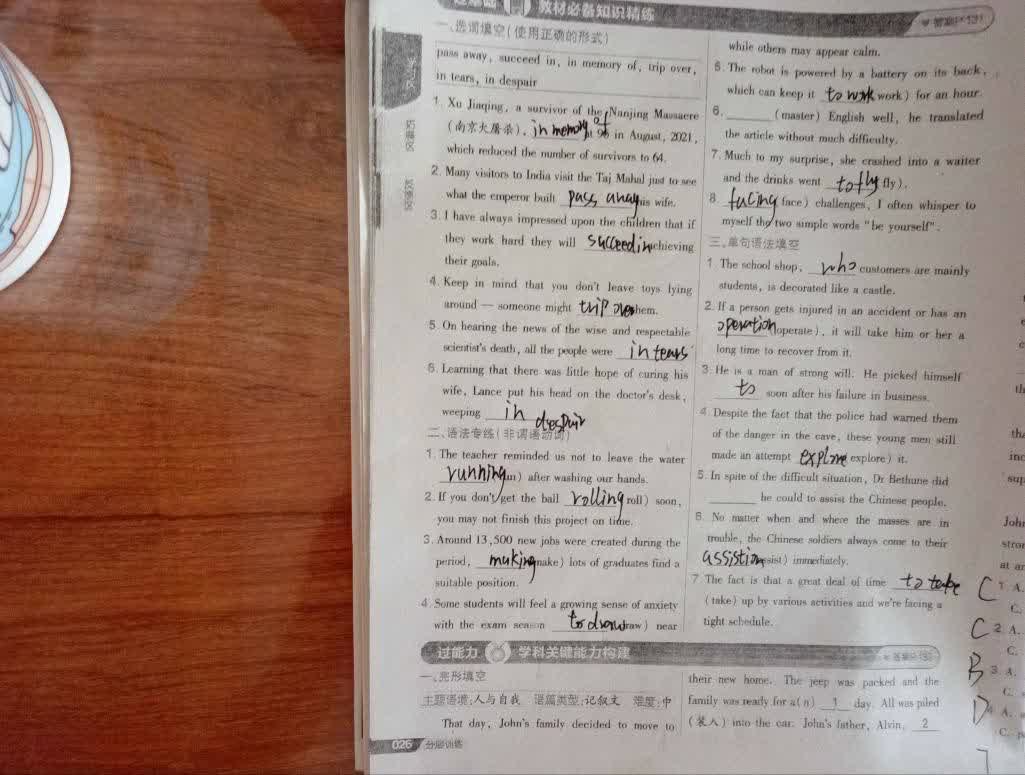 教材必备知识精练
一、选词填空(使用正确的形式)
pass away, succeed in, in memory of, trip over,
in tears, in despair
1. Xu Jiaqing, a survivor of the Nanjing Massacre
(南京大屠杀), in memory of at 96 in August, 2021,
which reduced the number of survivors to 64.
2. Many visitors to India visit the Taj Mahal just to see
what the emperor built pass away his wife.
3. I have always impressed upon the children that if
they work hard they will succeed in achieving
their goals.
4. Keep in mind that you don't leave toys lying
around — someone might trip over them.
5. On hearing the news of the wise and respectable
scientist's death, all the people were in tears
6. Learning that there was little hope of curing his
wife, Lance put his head on the doctor's desk,
weeping in despair
二、语法专练(非谓语动词)
1. The teacher reminded us not to leave the water
running run) after washing our hands.
2. If you don't get the ball rolling roll) soon,
you may not finish this project on time.
3. Around 13,500 new jobs were created during the
period, making make) lots of graduates find a
suitable position.
4. Some students will feel a growing sense of anxiety
with the exam season to draw draw) near
while others may appear calm.
5. The robot is powered by a battery on its back,
which can keep it to work work) for an hour.
6. (master) English well, he translated
the article without much difficulty.
7. Much to my surprise, she crashed into a waiter
and the drinks went to fly fly).
8 facing face) challenges, I often whisper to
myself the two simple words "be yourself".
三、单句语法填空
1 The school shop, who customers are mainly
students, is decorated like a castle.
2. If a person gets injured in an accident or has an
operation operate), it will take him or her a
long time to recover from it.
3. He is a man of strong will. He picked himself
to soon after his failure in business.
4. Despite the fact that the police had warned them
of the danger in the cave, these young men still
made an attempt explore explore) it.
5. In spite of the difficult situation, Dr Bethune did
he could to assist the Chinese people.
6. No matter when and where the masses are in
trouble, the Chinese soldiers always come to their
assistion assist) immediately.
7 The fact is that a great deal of time to take
(take) up by various activities and we're facing a
tight schedule.
过能力 学科关键能力构建
一、完形填空
主题语境:人与自我 语篇类型:记叙文 难度:中
That day, John's family decided to move to
their new home. The jeep was packed and the
family was ready for a(n) 1 day. All was piled
(装入) into the car. John's father, Alvin, 2
026 分层训练
C 1 A.
C.
C 2 A.
C.
B 3 A.
D